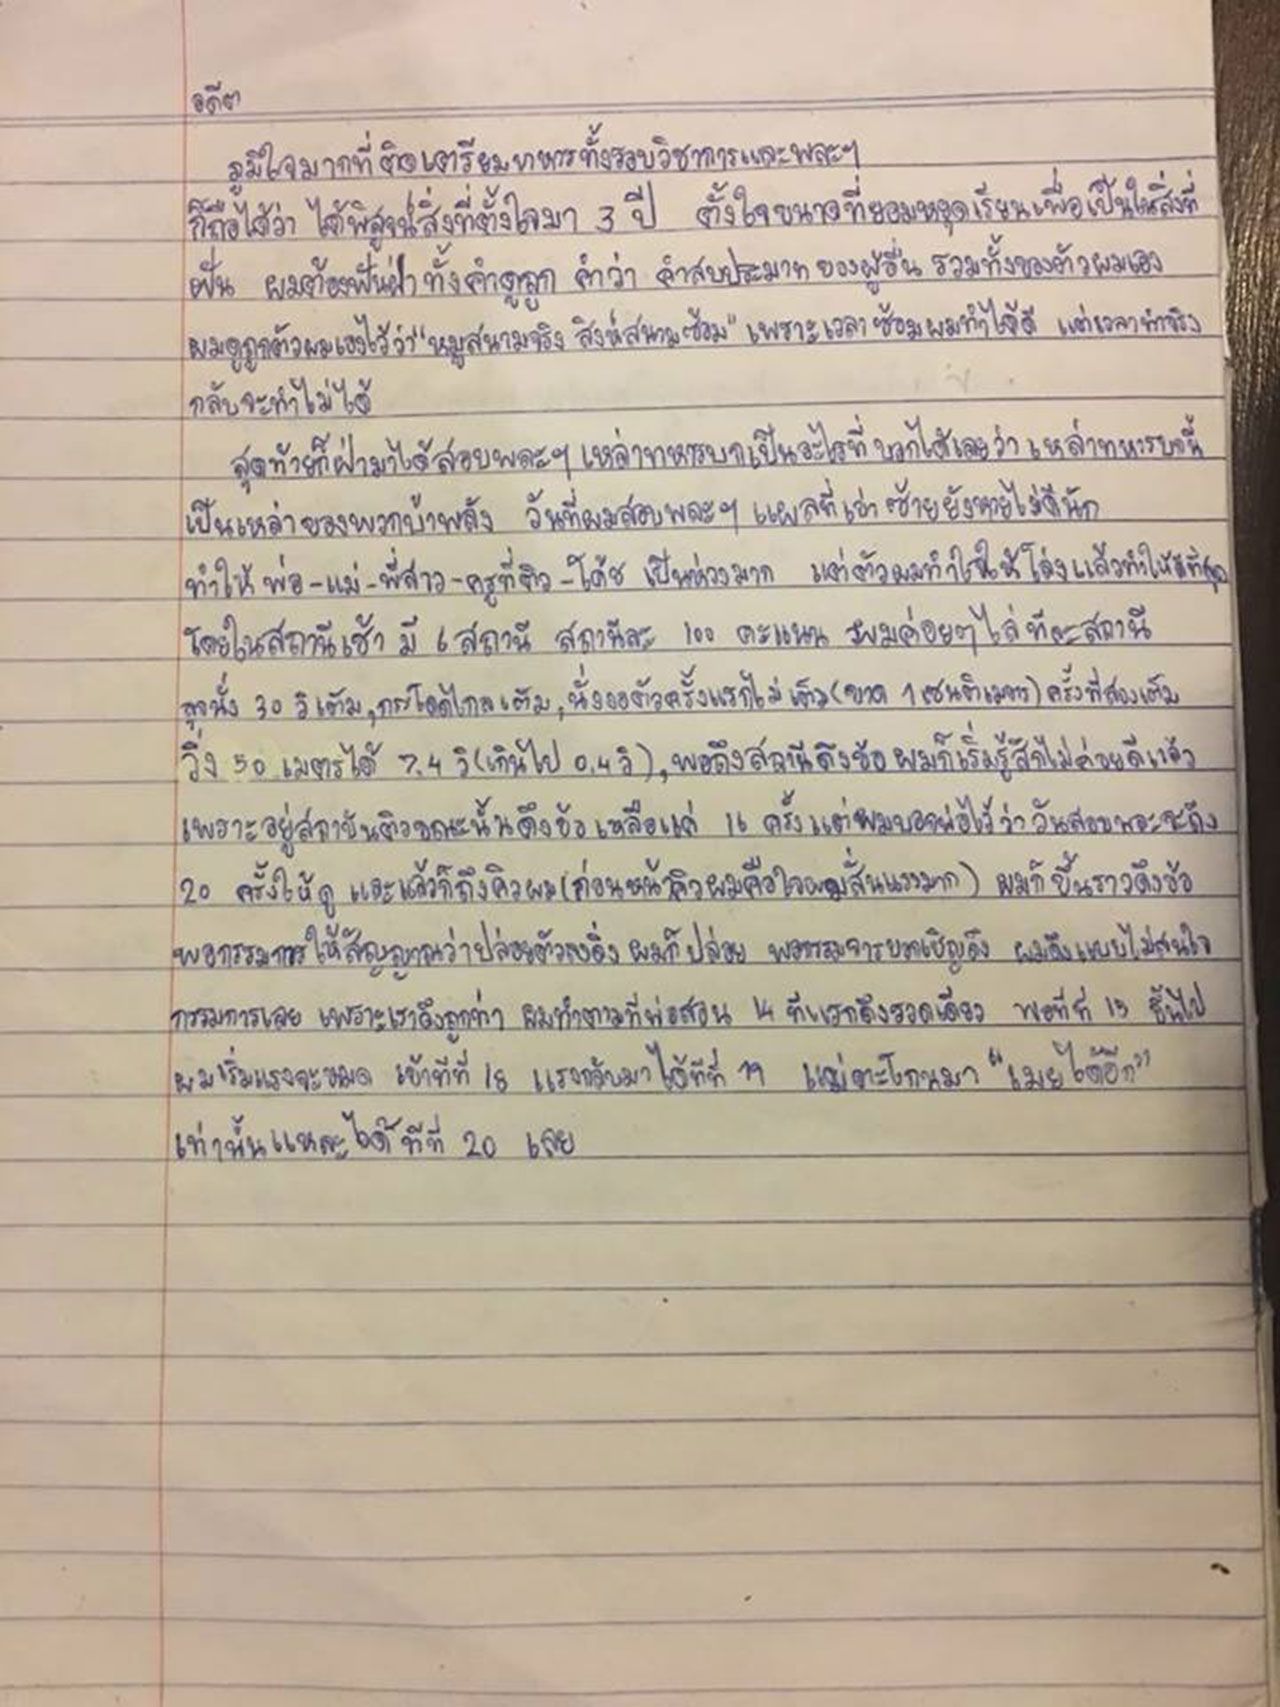 อดีต
ภูมิใจมากที่ติดเตรียมทหารทั้งรอบวิชาการและพละฯ
ก็ถือได้ว่า ได้พิสูจน์สิ่งที่ตั้งใจมา 3 ปี ตั้งใจขนาดที่ยอมหยุดเรียนเพื่อเป็นในสิ่งที่
ฝัน ผมต้องฟันฝ่า ทั้งคำดูถูก คำว่า คำสบประมาท ของผู้อื่น รวมทั้งของตัวผมเอง
ผมดูถูกตัวผมเองไว้ว่า "หมูสนามจริง สิงห์สนามซ้อม" เพราะเวลาซ้อมผมทำได้ดี แต่เวลาทำจริง
กลับจะทำไม่ได้
สุดท้ายก็ฝ่ามาได้สอบพละฯ เหล่าทหารบกเป็นอะไรที่ บอกได้เลยว่า เหล่าทหารบกนี้
เป็นเหล่าของพวกบ้าพลัง วันที่ผมสอบพละฯ แผลที่เข่าซ้ายยังหายไม่ดีนัก
ทำให้ พ่อ-แม่-พี่สาว-ครูที่ติว-โค้ช เป็นห่วงมาก แต่ตัวผมทำใจให้โล่งแล้วทำให้ดีที่สุด
โดยในสถานีเช้า มี 6 สถานี สถานีละ 100 คะแนน ผมค่อยๆไล่ทีละสถานี
ลุกนั่ง 30 วิเต็ม, กระโดดไกลเต็ม, นั่งงอตัวครั้งแรกไม่เต็ม(ขาด 1 เซนติเมตร) ครั้งที่สองเต็ม
วิ่ง 50 เมตรได้ 7.4 วิ(เกินไป 0.4 วิ), พอถึงสถานีดึงข้อ ผมก็เริ่มรู้สึกไม่ค่อยดีแล้ว
เพราะอยู่สถาบันติวขณะนั้นดึงข้อเหลือแค่ 16 ครั้ง แต่ผมบอกพ่อไว้ว่าวันสอบพละจะดึง
20 ครั้งให้ดู และแล้วก็ถึงคิวผม(ก่อนหน้าคิวผมคือใจผมสั่นแรงมาก) ผมก็ขึ้นราวดึงข้อ
พอกรรมการให้สัญญาณว่าปล่อยตัวลงดิ่ง ผมก็ปล่อย พอกรรมการบอกเชิญดึง ผมดึงแบบไม่สนใจ
กรรมการเลย เพราะเราดึงถูกท่า ผมทำตามที่พ่อสอน 14 ทีแรกดึงรวดเดียว พอทีที่ 15 ขึ้นไป
ผมเริ่มแรงจะหมด เข้าทีที่ 18 แรงกลับมาได้ทีที่ 19 แม่ตะโกนมา "เมยได้อีก"
เท่านั้นแหละได้ทีที่ 20 เลย